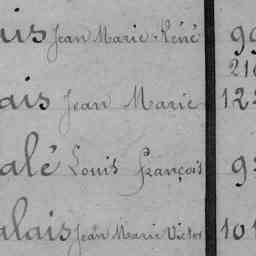 ais Jean Marie René 99
21
ais Jean Marie 122
alé Louis François 93
alais Jean Marie Victor 101